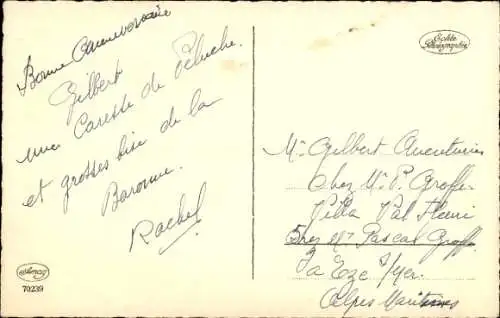 Bonne Anniversaire
Gilbert
une Caresse de Peluche.
et grosses bise de la
Baronne.
Rachel
Echte Photographie
70239
Mr Gilbert Aventurier
Chez Mr P. Groff
Villa Val Fleuri
Chez Mr Pascal Groff
à Eze s/Mer
Alpes Maritimes